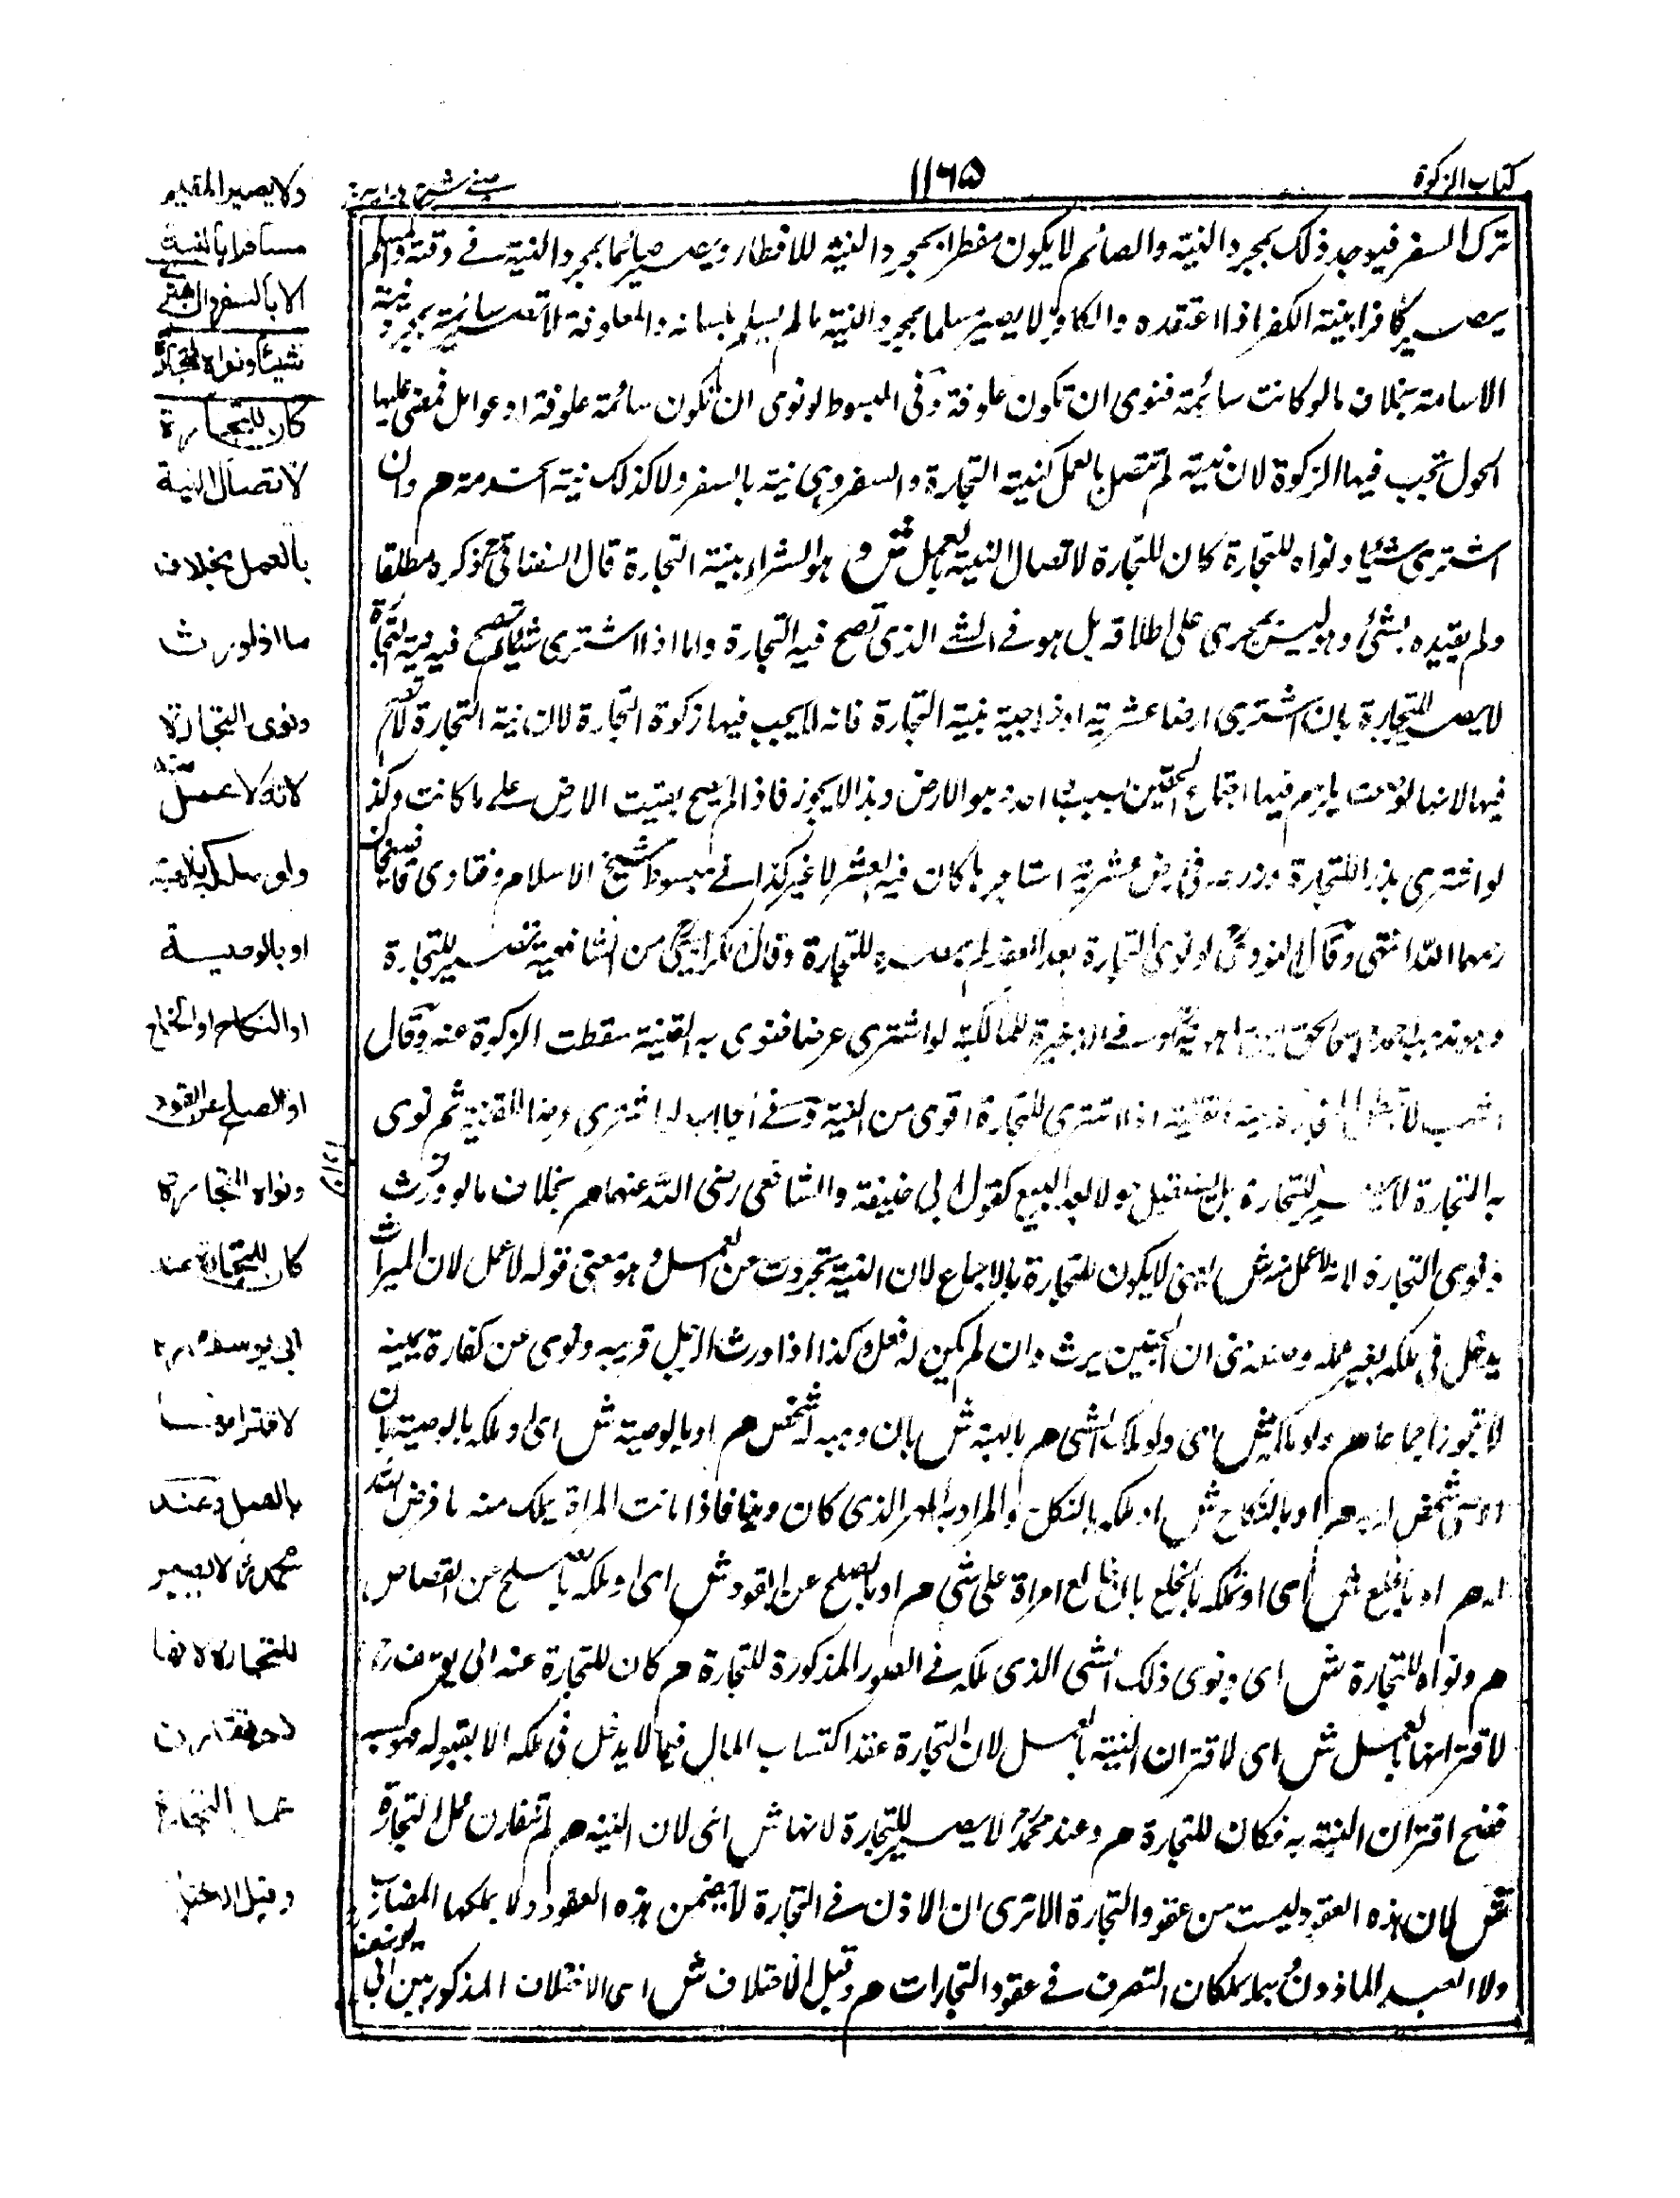 كتاب الزكوة
١١٦٥
عينے شرح هداية
ترك السفر فيوجد ذلك بمجرد النية والصائم لا يكون مفطرا بمجرد النية للافطار ويصير صائما بمجرد النية فے وقته والمسلم
يصير كافرا بنية الكفر اذا اعتقده والكافر لا يصير مسلما بمجرد النية ما لم يسلم بلسانه والمعلوفة لا تصير سائمة بمجرد نية
الاسامة بخلاف ما لو كانت سائمة فنوى ان تكون علوفة وفى المبسوط لو نوى ان تكون سائمة علوفة او عوامل فمضى عليها
الحول تجب فيها الزكوة لان نيته لم تتصل بالعمل كنية التجارة والسفر وهى نية بالسفر ولا كذلك نية الخدمة م وان
اشترى شيئا ونواه للتجارة كان للتجارة لاتصال النية بالعمل ش وهو الشراء بنية التجارة قال السغناقى ذكره مطلقا
ولم يقيده بشئ وليس يجرى على اطلاقه بل هو فے الشے الذى تصح فيه التجارة واما اذا اشترى شيئا لا تصح فيه نية التجارة
لا يصير للتجارة بان اشترى ارضا عشرية او خراجية بنية التجارة فانه لا يجب فيها زكوة التجارة لان نية التجارة لا تصح
فيها لانها لو صحت يلزم فيها اجتماع الحقين بسبب واحد وهو الارض وهذا لا يجوز فاذا لم يصح بقيت الارض على ما كانت وكذا
لو اشترى بذرا للتجارة وزرعه فى ارض عشرية استاجرها كان فيه العشر لا غير كذا فے مبسوط شيخ الاسلام وفتاوى قاضيخان
رحمهما الله انتهى وقال النووى لو نوى التجارة بعد العقد لم يصر للتجارة وقال الكرابيسى من الشافعية تصير للتجارة
وهو مذهب احمد واسحق بن راهويه وفے الذخيرة للمالكية لو اشترى عرضا فنوى به القنية سقطت الزكوة عنه وقال
اشهب لا تبطل التجارة بنية القنية اذ الاشترى للتجارة اقوى من النية وفے الجلاب لو اشترى عرضا للقنية ثم نوى
به التجارة لا يصير للتجارة بل يستقبل حولا بعد البيع كقول ابى حنيفة والشافعى رضى الله عنهما م بخلاف ما لو ورث
ونوى التجارة لانه لا عمل منه ش يعنى لا يكون للتجارة بالاجماع لان النية تجردت عن العمل وهو معنى قوله لا عمل لان الميراث
يدخل فى ملكه بغير عمله وصنعه حتى ان الجنين يرث وان لم يكن له فعل وكذا اذا ورث الرجل قريبه ونوى عن كفارة يمينه
لا تجوز اجماعا م ولو ملكه ش اى ولو ملك الشى م بالهبة ش بان وهبه له شخص م او بالوصية ش اى او ملكه بالوصية بان
اوصى شخص له به م او بالنكاح ش او ملكه بالنكاح والمراد به المهر الذى كان دينا فاذا مانت المراة يملك منه ما فرض الله
له م او بالخلع ش اى او تملكه بالخلع بان خالع امراة على شى م او بالصلح عن القود ش اى او ملكه بالصلح عن القصاص
م ونواه للتجارة ش اى ونوى ذلك الشى الذى ملكه فے الصور المذكورة للتجارة م كان للتجارة عند ابى يوسف
لاقترانها بالعمل ش اى لاقتران النية بالعمل لان التجارة عقد اكتساب المال فيما لا يدخل فى ملكه الا بقبوله فهو كسبه
فصح اقتران النية به فكان للتجارة م وعند محمد لا يصير للتجارة لانها ش اى لان النية م لم تقارن عمل التجارة
ش لان هذه العقود ليست من عقود التجارة الا ترى ان الاذن فے التجارة لا يتضمن هذه العقود ولا يملكها المضارب
ولا العبد الماذون بما يملكان التصرف فے عقود التجارات م وقيل الاختلاف ش اى الاختلاف المذكور بين ابى يوسف
ولا يصير المقيم
مسافرا بالنية
الا بالسفر وان اشترى
شيئا ونواه للتجارة
كان للتجارة
لاتصال النية
بالعمل بخلاف
ما اذا ورث
ونوى التجارة
لانه لا عمل منه
ولو ملكه بالهبة
او بالوصية
او النكاح او الخلع
او الصلح عن القود
ونواه للتجارة
كان للتجارة عند
ابى يوسف
لاقترانها
بالعمل وعند
محمد لا يصير
للتجارة لانها
لم تقارن
عمل التجارة
وقيل الاختلاف